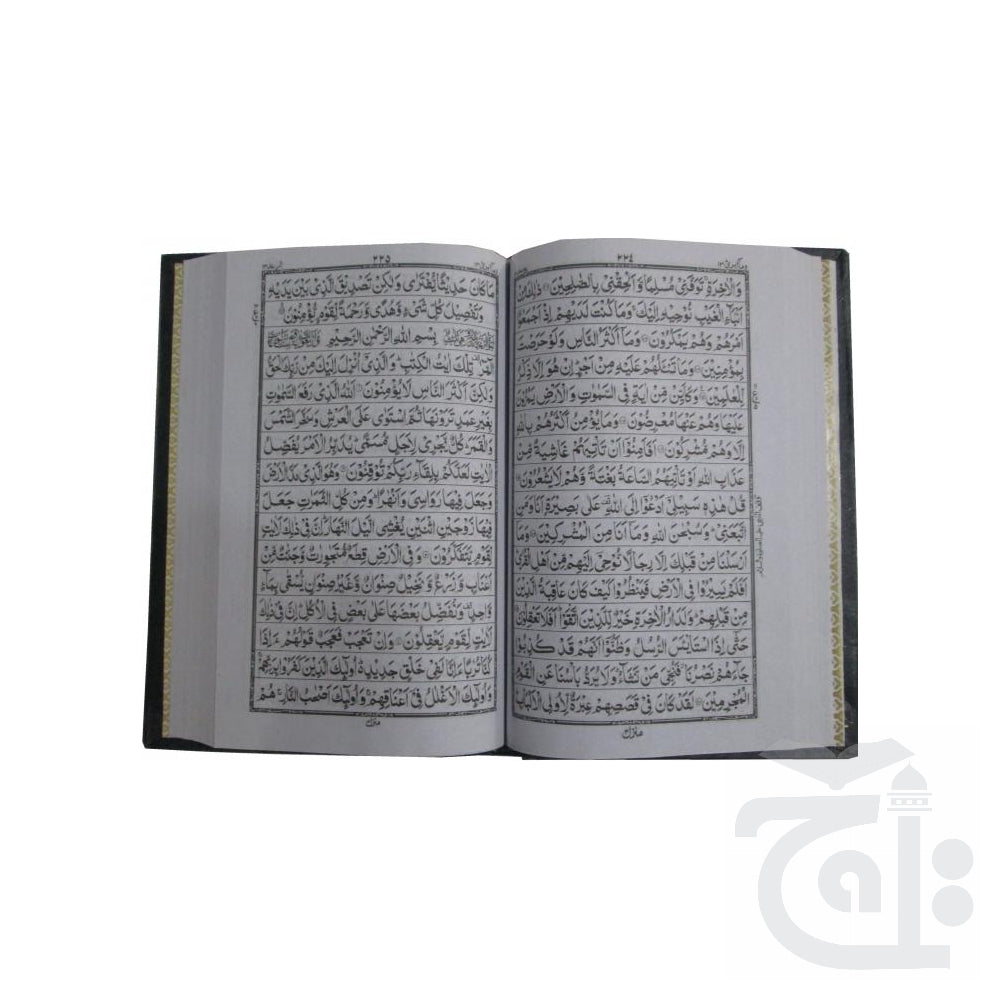 ٢٢٤
وَالْاٰخِرَةِ ۚ تَوَفَّنِيْ مُسْلِمًا وَّ اَلْحِقْنِيْ بِالصّٰلِحِيْنَ ذٰلِكَ مِنْ
اَنْۢبَآءِ الْغَيْبِ نُوْحِيْهِ اِلَيْكَ ۚ وَمَا كُنْتَ لَدَيْهِمْ اِذْ اَجْمَعُوْۤا
اَمْرَهُمْ وَهُمْ يَمْكُرُوْنَ وَمَاۤ اَكْثَرُ النَّاسِ وَلَوْ حَرَصْتَ
بِمُؤْمِنِيْنَ وَمَا تَسْـَٔلُهُمْ عَلَيْهِ مِنْ اَجْرٍ ؕ اِنْ هُوَ اِلَّا ذِكْرٌ
لِّلْعٰلَمِيْنَ وَكَاَيِّنْ مِّنْ اٰيَةٍ فِي السَّمٰوٰتِ وَ الْاَرْضِ يَمُرُّوْنَ
عَلَيْهَا وَهُمْ عَنْهَا مُعْرِضُوْنَ وَمَا يُؤْمِنُ اَكْثَرُهُمْ بِاللّٰهِ
اِلَّا وَهُمْ مُّشْرِكُوْنَ اَفَاَمِنُوْۤا اَنْ تَاْتِيَهُمْ غَاشِيَةٌ مِّنْ
عَذَابِ اللّٰهِ اَوْ تَاْتِيَهُمُ السَّاعَةُ بَغْتَةً وَّهُمْ لَا يَشْعُرُوْنَ
قُلْ هٰذِهٖ سَبِيْلِيْۤ اَدْعُوْۤا اِلَى اللّٰهِ ؔ عَلٰى بَصِيْرَةٍ اَنَا وَمَنِ
اتَّبَعَنِيْ ؕ وَسُبْحٰنَ اللّٰهِ وَمَاۤ اَنَا مِنَ الْمُشْرِكِيْنَ وَمَاۤ
اَرْسَلْنَا مِنْ قَبْلِكَ اِلَّا رِجَالًا نُّوْحِيْۤ اِلَيْهِمْ مِّنْ اَهْلِ الْقُرٰى ؕ
اَفَلَمْ يَسِيْرُوْا فِي الْاَرْضِ فَيَنْظُرُوْا كَيْفَ كَانَ عَاقِبَةُ الَّذِيْنَ
مِنْ قَبْلِهِمْ ؕ وَلَدَارُ الْاٰخِرَةِ خَيْرٌ لِّلَّذِيْنَ اتَّقَوْا ؕ اَفَلَا تَعْقِلُوْنَ
حَتّٰۤى اِذَا اسْتَايْـَٔسَ الرُّسُلُ وَظَنُّوْۤا اَنَّهُمْ قَدْ كُذِبُوْا
جَآءَهُمْ نَصْرُنَا ۙ فَنُجِّيَ مَنْ نَّشَآءُ ؕ وَلَا يُرَدُّ بَاْسُنَا عَنِ الْقَوْمِ
الْمُجْرِمِيْنَ لَقَدْ كَانَ فِيْ قَصَصِهِمْ عِبْرَةٌ لِّاُولِي الْاَلْبَابِ ؕ
٢٢٥
مَا كَانَ حَدِيْثًا يُّفْتَرٰى وَلٰكِنْ تَصْدِيْقَ الَّذِيْ بَيْنَ يَدَيْهِ
وَتَفْصِيْلَ كُلِّ شَيْءٍ وَّ هُدًى وَّ رَحْمَةً لِّقَوْمٍ يُّؤْمِنُوْنَ
بِسْمِ اللّٰهِ الرَّحْمٰنِ الرَّحِيْمِ
الٓمّٓرٰ ۫ تِلْكَ اٰيٰتُ الْكِتٰبِ ؕ وَ الَّذِيْۤ اُنْزِلَ اِلَيْكَ مِنْ رَّبِّكَ الْحَقُّ
وَلٰكِنَّ اَكْثَرَ النَّاسِ لَا يُؤْمِنُوْنَ اَللّٰهُ الَّذِيْ رَفَعَ السَّمٰوٰتِ
بِغَيْرِ عَمَدٍ تَرَوْنَهَا ثُمَّ اسْتَوٰى عَلَى الْعَرْشِ وَسَخَّرَ الشَّمْسَ
وَالْقَمَرَ ؕ كُلٌّ يَّجْرِيْ لِاَجَلٍ مُّسَمًّى ؕ يُدَبِّرُ الْاَمْرَ يُفَصِّلُ
الْاٰيٰتِ لَعَلَّكُمْ بِلِقَآءِ رَبِّكُمْ تُوْقِنُوْنَ وَهُوَ الَّذِيْ مَدَّ الْاَرْضَ
وَجَعَلَ فِيْهَا رَوَاسِيَ وَاَنْهٰرًا ؕ وَمِنْ كُلِّ الثَّمَرٰتِ جَعَلَ
فِيْهَا زَوْجَيْنِ اثْنَيْنِ يُغْشِي الَّيْلَ النَّهَارَ ؕ اِنَّ فِيْ ذٰلِكَ لَاٰيٰتٍ
لِّقَوْمٍ يَّتَفَكَّرُوْنَ وَ فِي الْاَرْضِ قِطَعٌ مُّتَجٰوِرٰتٌ وَّ جَنّٰتٌ مِّنْ
اَعْنَابٍ وَّ زَرْعٌ وَّ نَخِيْلٌ صِنْوَانٌ وَّ غَيْرُ صِنْوَانٍ يُّسْقٰى بِمَآءٍ
وَّاحِدٍ ۫ وَنُفَضِّلُ بَعْضَهَا عَلٰى بَعْضٍ فِي الْاُكُلِ ؕ اِنَّ فِيْ ذٰلِكَ
لَاٰيٰتٍ لِّقَوْمٍ يَّعْقِلُوْنَ وَاِنْ تَعْجَبْ فَعَجَبٌ قَوْلُهُمْ ءَاِذَا
كُنَّا تُرٰبًا ءَاِنَّا لَفِيْ خَلْقٍ جَدِيْدٍ ؕ اُولٰٓئِكَ الَّذِيْنَ كَفَرُوْا بِرَبِّهِمْ ۚ
وَاُولٰٓئِكَ الْاَغْلٰلُ فِيْۤ اَعْنَاقِهِمْ ۚ وَاُولٰٓئِكَ اَصْحٰبُ النَّارِ ۚ هُمْ